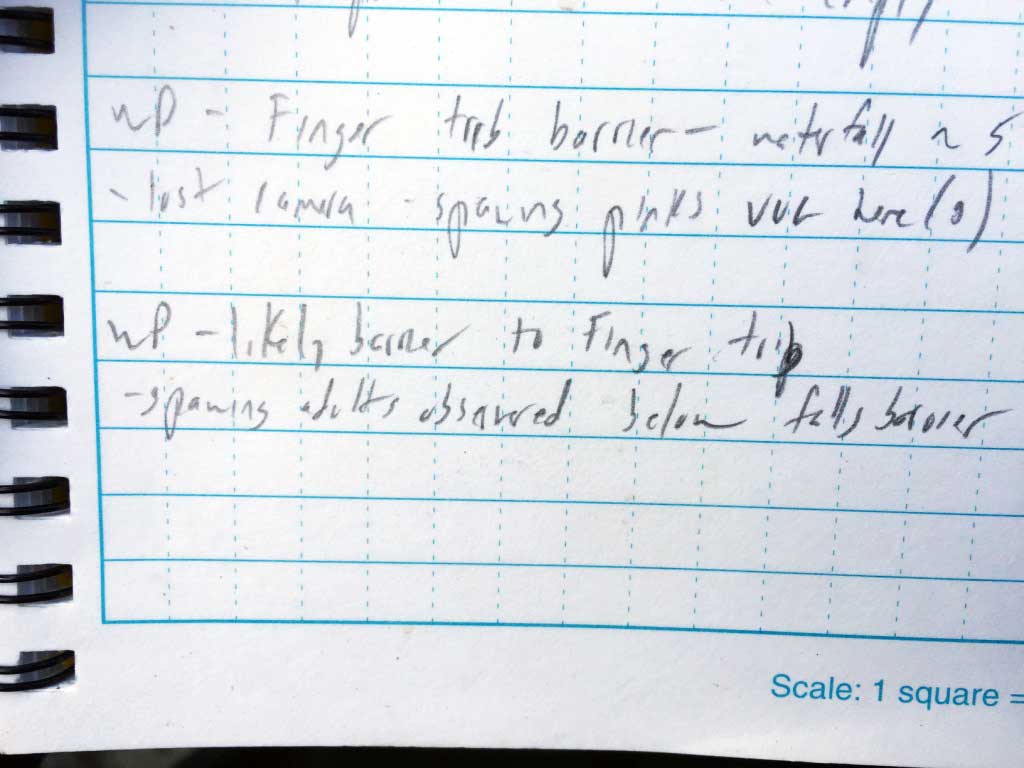 WP - Finger trib barrier - waterfall ~ 5
- lost camera - spawng pinks here
WP - likely barrier to Finger trib
- spawing adults observed below falls barrier
Scale: 1 square =